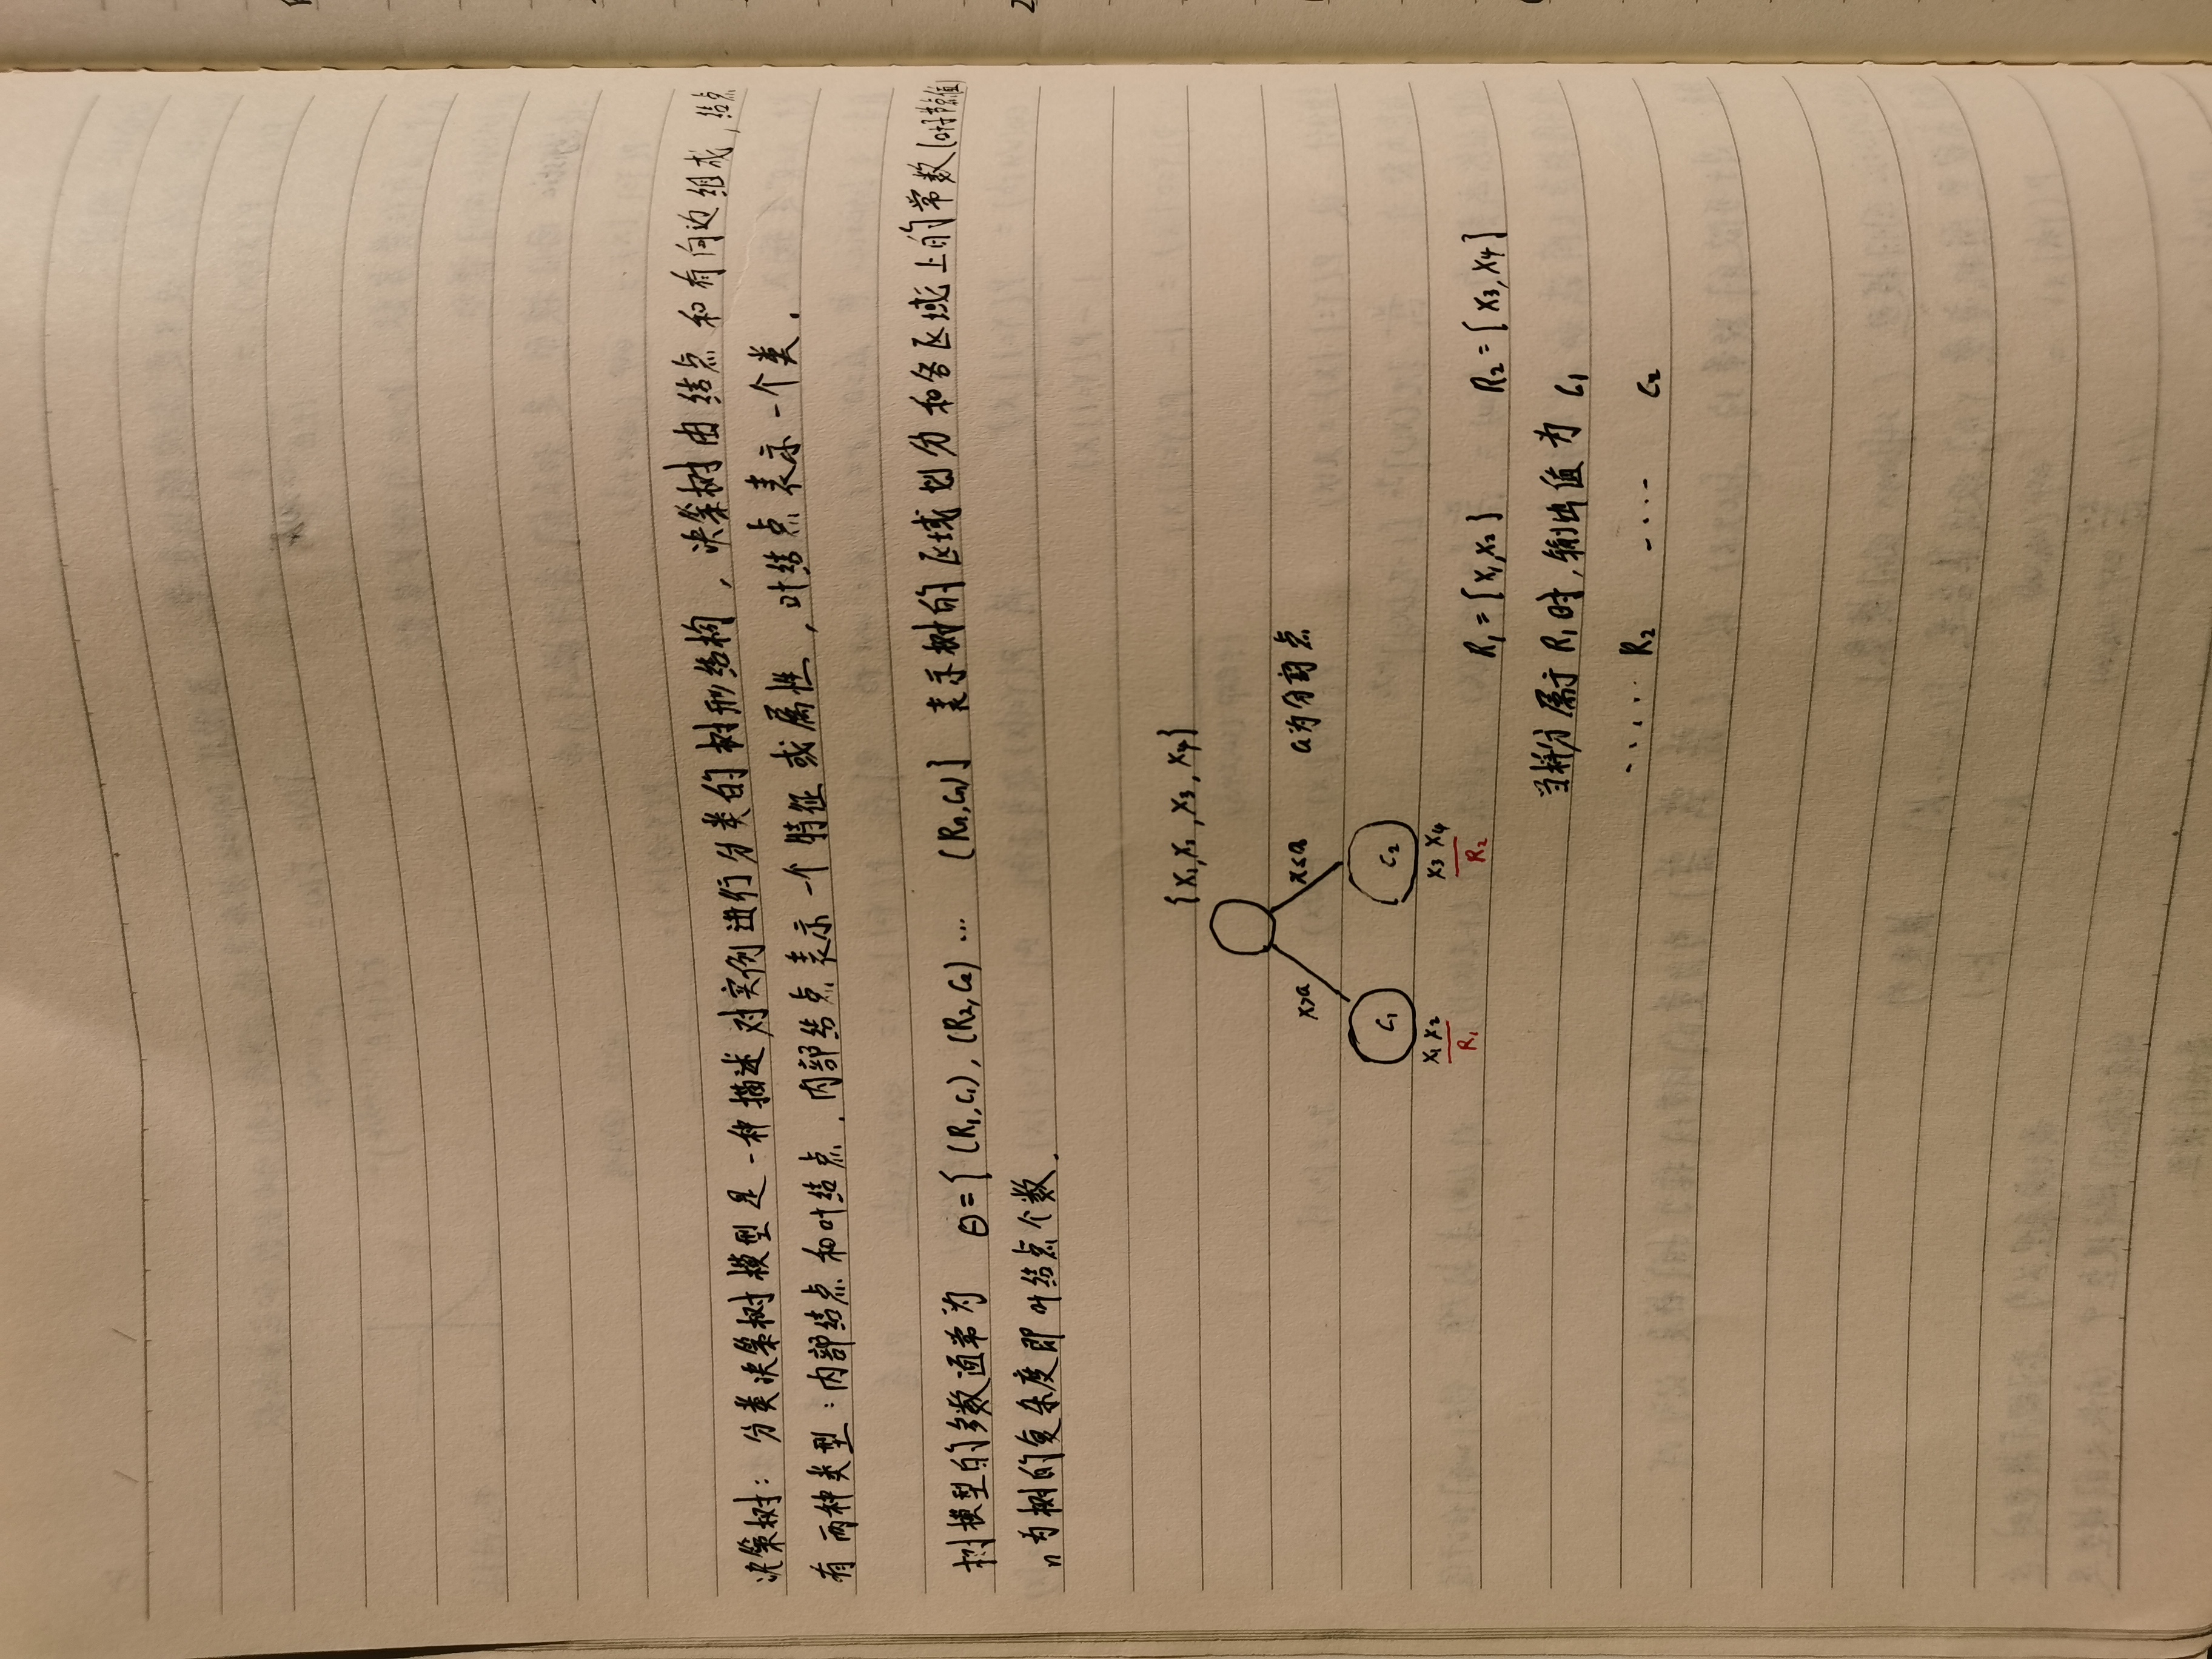 决策树：分类决策树模型是一种描述对实例进行分类的树形结构，决策树由结点和有向边组成，结点
有两种类型：内部结点和叶结点，内部结点表示一个特征或属性，叶结点表示一个类．
树模型的参数通常为 θ={(R₁,C₁),(R₂,C₂)… (Rn,Cn)} 表示树的区域划分和各区域上的常数(叶节点值)
n为树的复杂度即叶结点个数．
{X₁,X₂,X₃,X₄}
x>a x≤a a为分割点
C₁ C₂
X₁ X₂ X₃ X₄
R₁ R₂
R₁={X₁,X₂} R₂={X₃,X₄}
当划分属于R₁时,输出值为 C₁
..... R₂ .... C₂